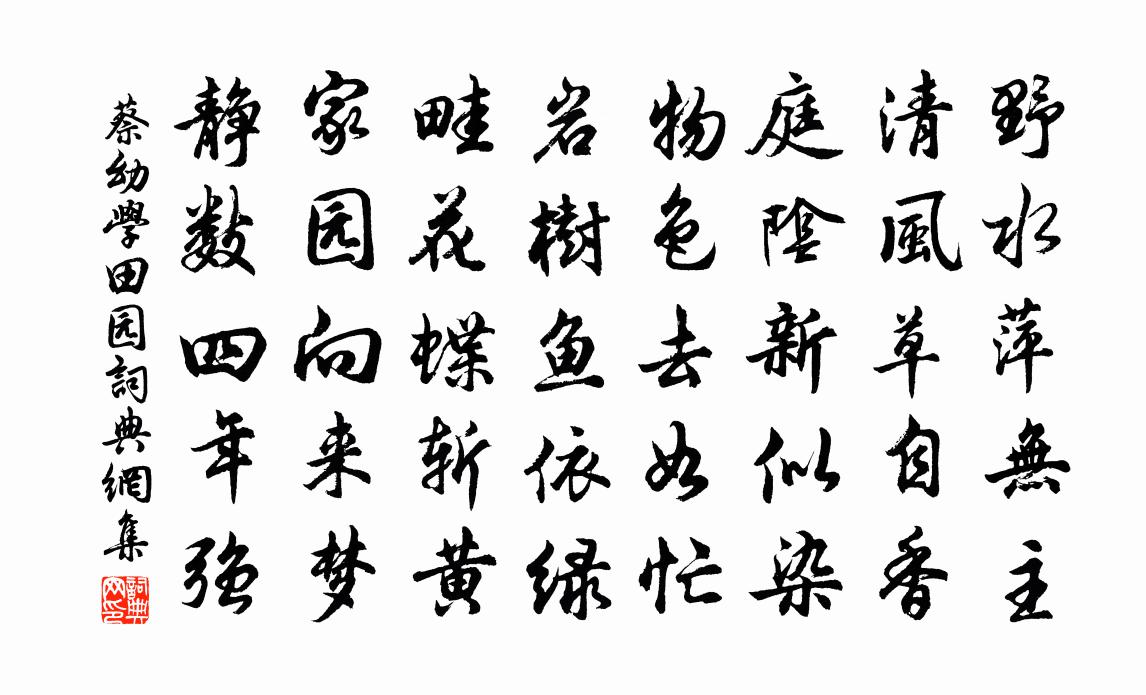 野水萍無主
清風草自香
庭陰新似染
物色去如忙
岩樹魚依绿
畦花蝶斩黄
家园向来梦
静数四年强
蔡幼學田园詞典網集
詞典网印